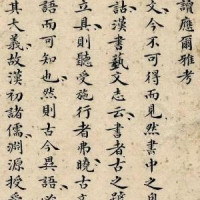 讀應爾雅考
文今不可得而見然書中之見
詁漢書藝文志云書者古之號
立具則聽受施行者弗曉古文
語而可知也然則古今異語必
其大義故漢初諸儒淵源授受